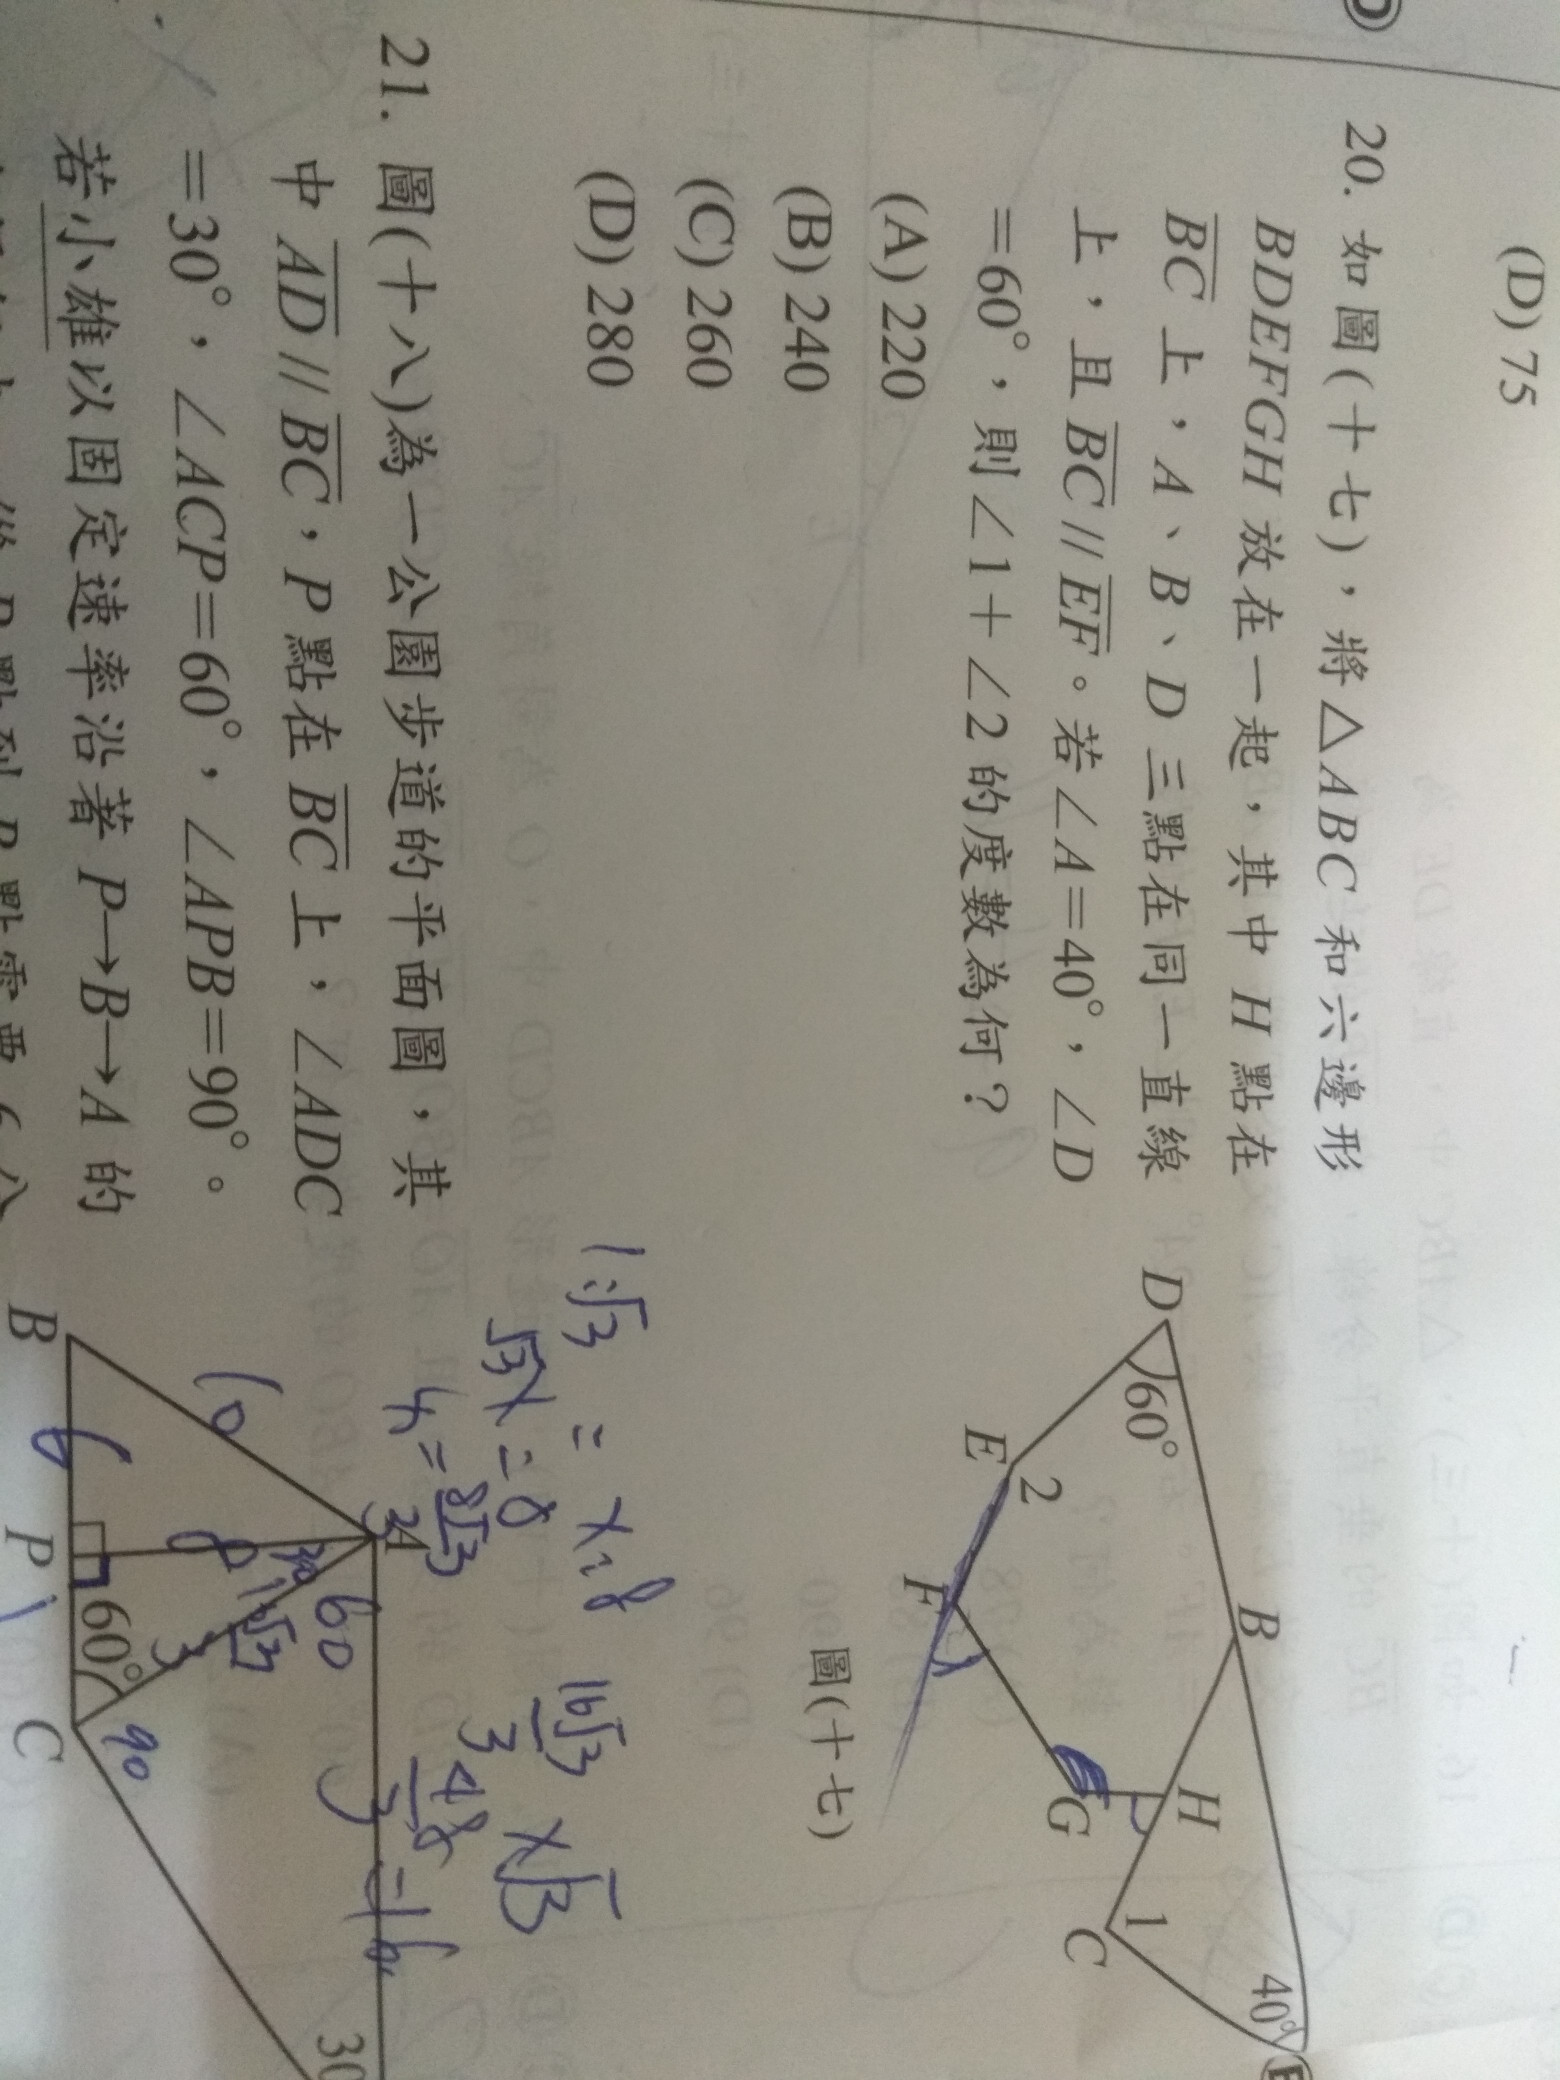 (D) 75
20. 如圖(十七)，將△ABC 和六邊形
BDEFGH 放在一起，其中 H 點在
BC 上，A、B、D 三點在同一直線
上，且 BC // EF。若∠A=40°，∠D
=60°，則∠1+∠2 的度數為何？
(A) 220
(B) 240
(C) 260
(D) 280
D
60°
E
2
B
F
H
G
1
C
40°
圖(十七)
21. 圖(十八)為一公園步道的平面圖，其
中 AD // BC，P 點在 BC 上，∠ADC
=30°，∠ACP=60°，∠APB=90°。
若小雄以固定速率沿著 P→B→A 的
1:√3 = x:8
√3x=8
x=8√3
3
16√3
3
x√3
48
3
=16
A
B
P
C
60°
30
10
6
8
60
90